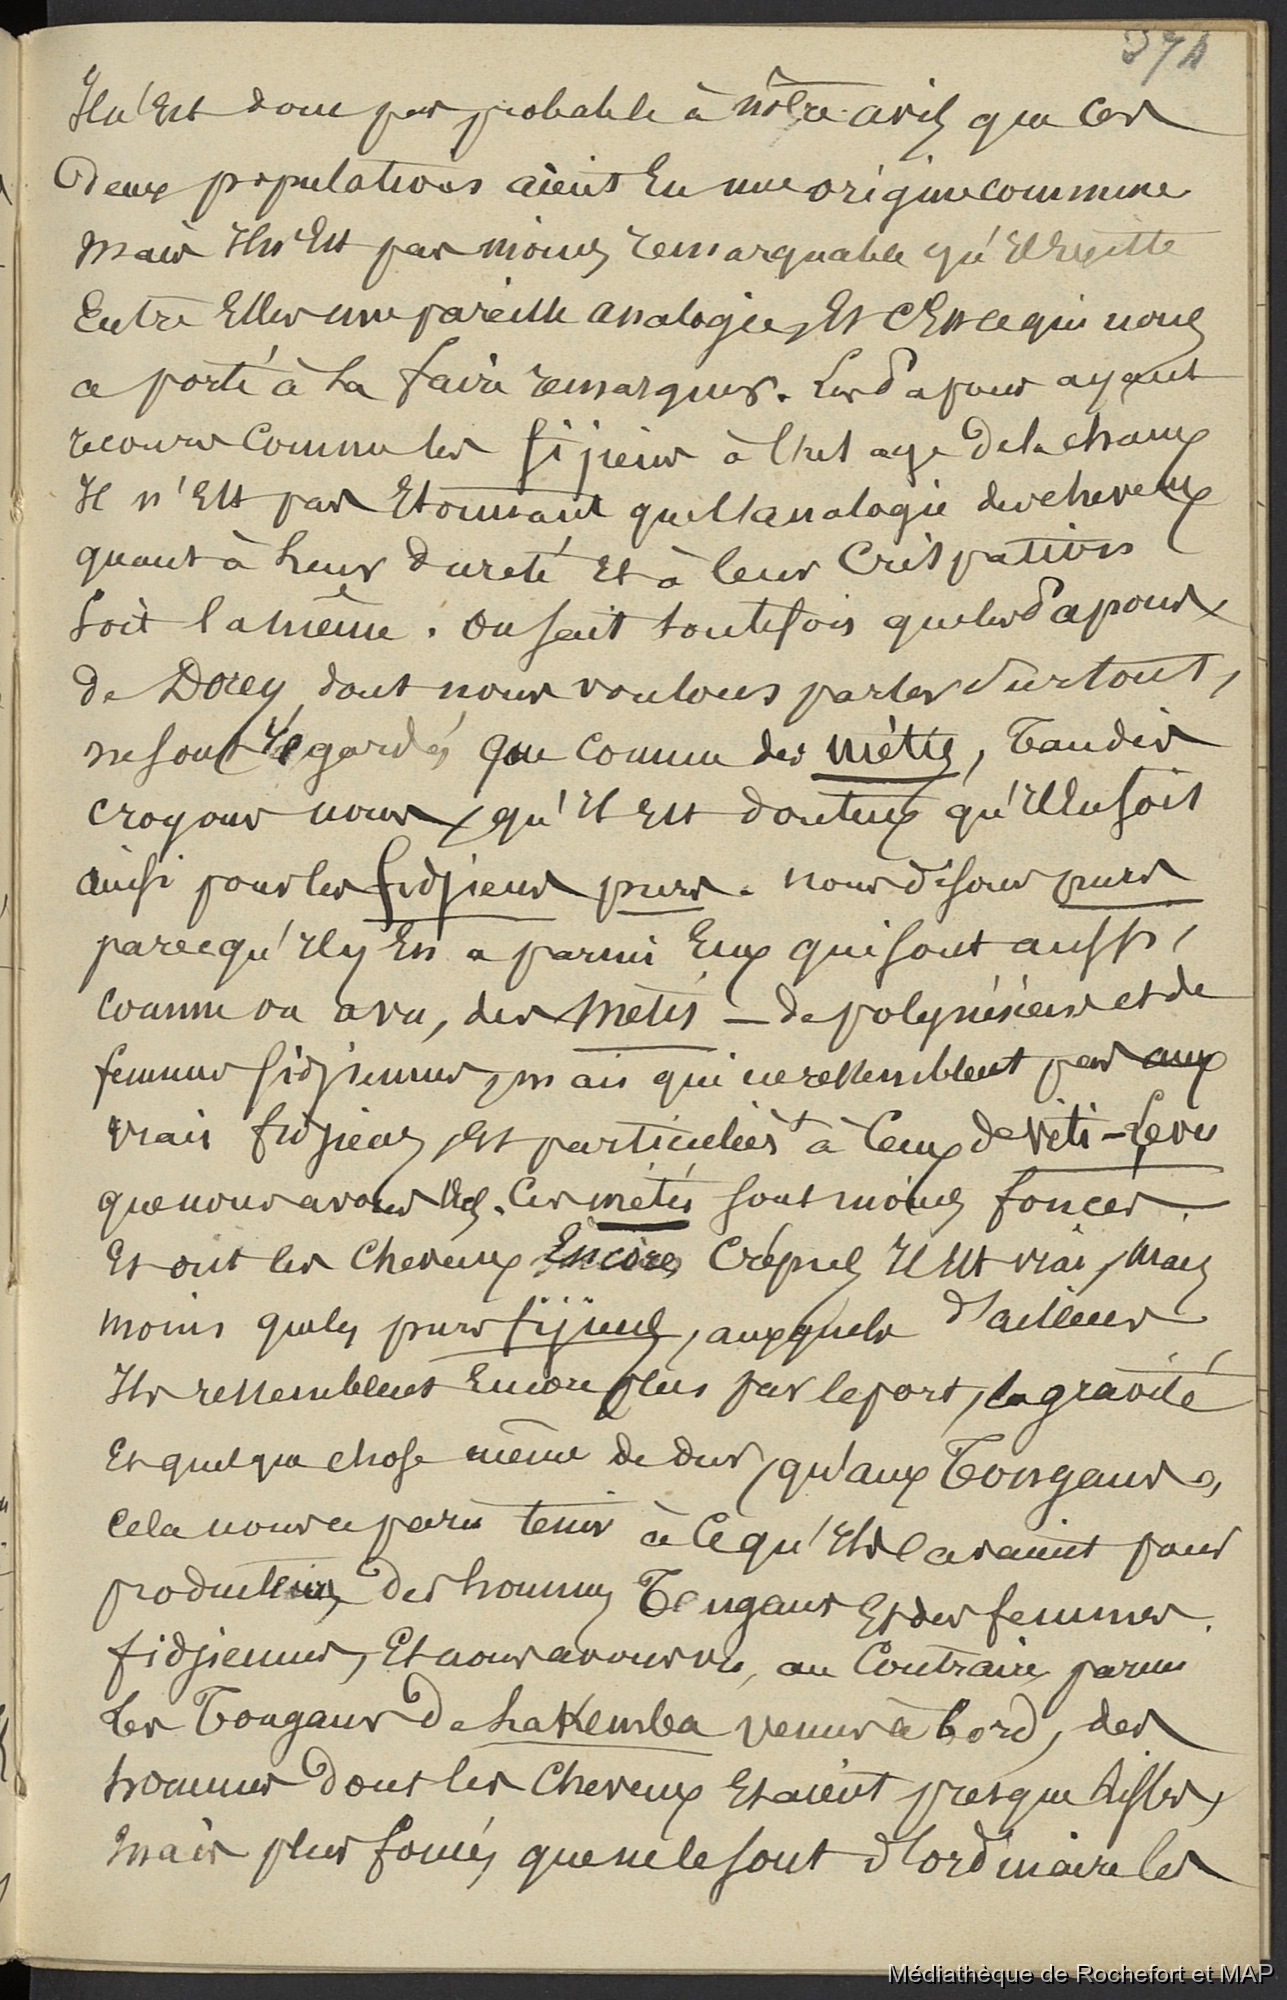 374
Il n'est donc pas probable à nôtre avis que ces
deux populations aient eu une origine commune
mais il n'est pas moins remarquable qu'il existe
entre elles une pareille analogie, et c'est ce qui nous
a porté à la faire remarquer. Les Papous ayant
recours comme les fijiens à l'usage de la chaux
il n'est pas étonnant que l'analogie des cheveux
quant à leur dureté et à leur crispation
soit la même. On sait toutefois que les Papous,
de Dorey, dont nous voulons parler surtout,
ne sont regardés que comme des métis, tandis
croyons nous, qu'il est douteux qu'il en soit
ainsi pour les fidjiens purs. nous disons purs
parcequ'il y en a parmi eux qui sont aussi,
comme on a vu, des métis – de polynésiens et de
femmes fidjiennes, mais qui ne ressemblent pas aux
vrais fidjiens, et particulièrt à ceux de Viti-Levu
que nous avons vus. Ces métis sont moins foncés.
Et ont les cheveux encore crépus il est vrai, mais
moins que les purs fijiens, auxquels d'ailleurs
ils ressemblent encore plus par le port, la gravité
et quelque chose même de dur, qu'aux Tongans,
cela nous a paru tenir à ce qu'ils avaient pour
producteurs des hommes Tongans et des femmes.
fidjiennes, et nous avons vu, au contraire, parmi
les Tongans de Lakemba venus à bord, des
hommes dont les cheveux étaient presque lisses,
mais plus foncés que ne le sont d'ordinaire les
Médiathèque de Rochefort et MAP